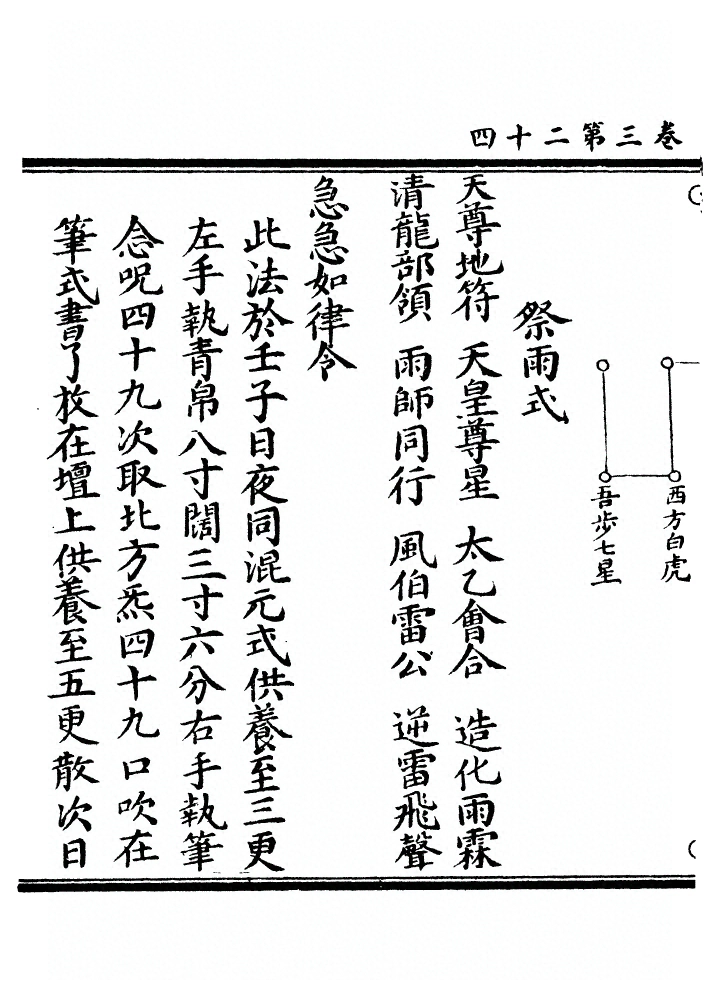 卷三第二十四
西方白虎
吾步七星
祭雨式
天尊地符 天皇尊星 太乙會合 造化雨霖
清龍部領 雨師同行 風伯雷公 逆雷飛聲
急急如律令
此法於壬子日夜同混元式供養至三更
左手執青帛八寸闊三寸六分右手執筆
念呪四十九次取北方炁四十九口吹在
筆式書了放在壇上供養至五更散次日